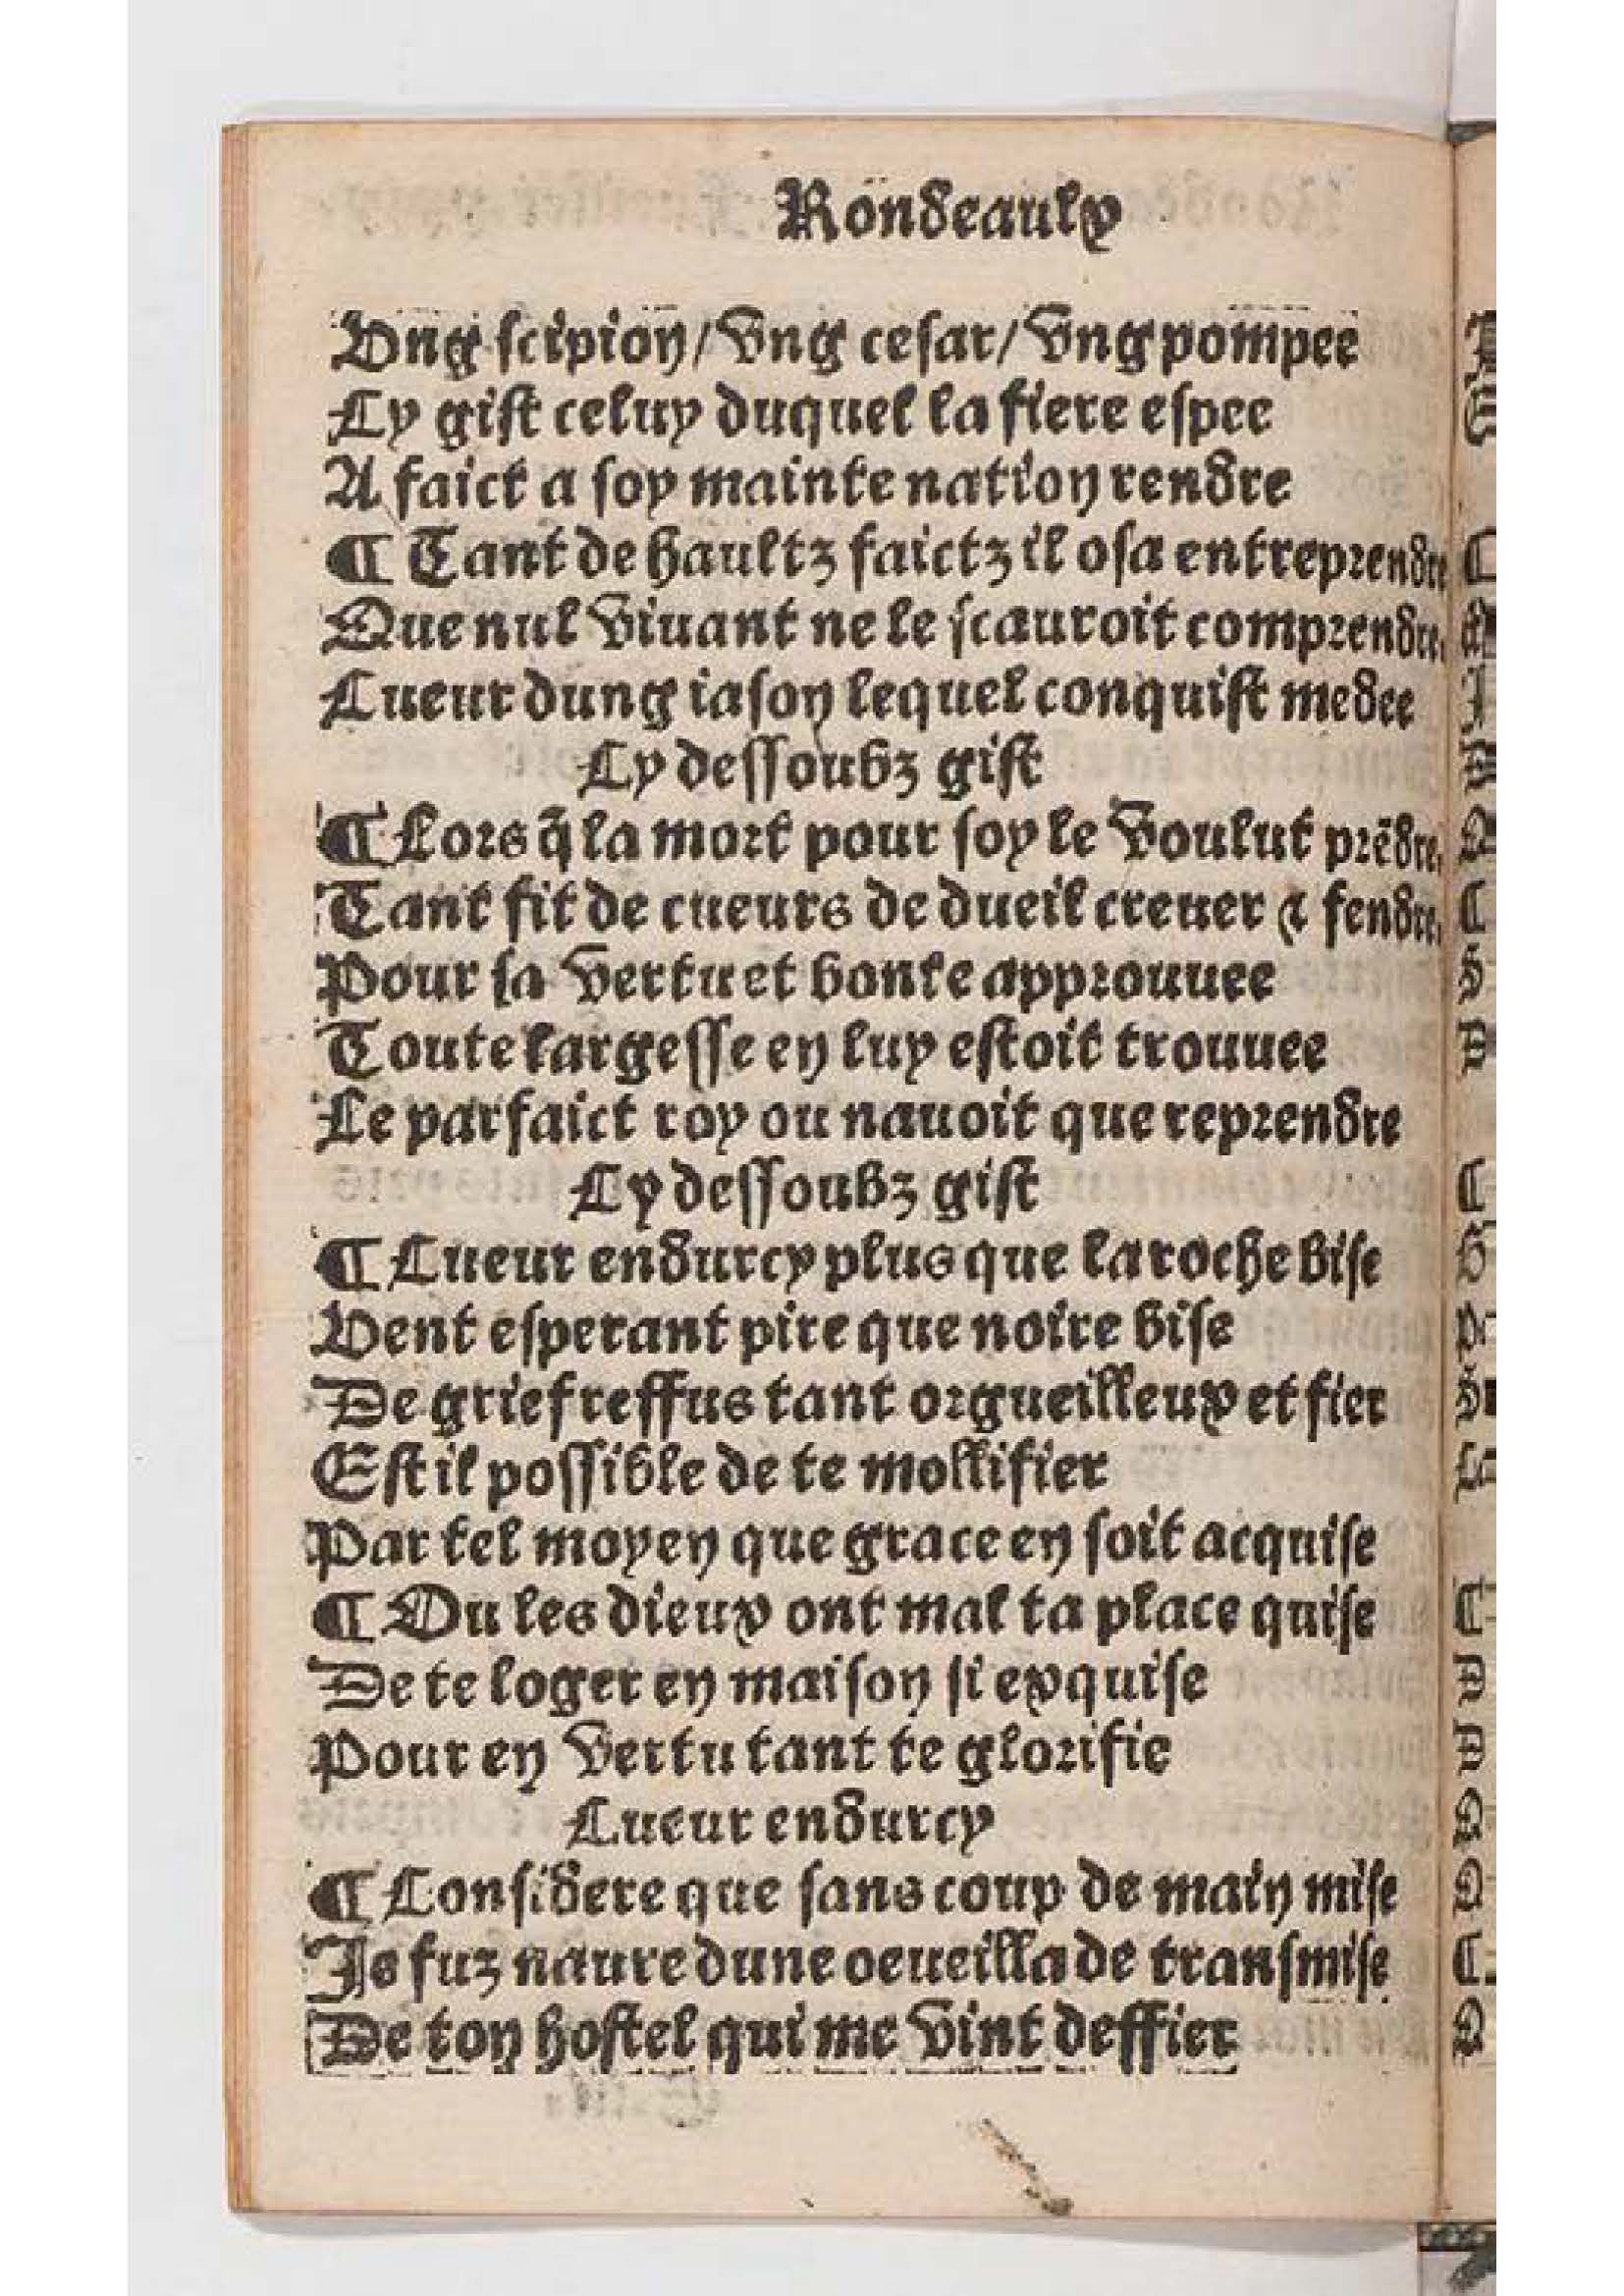 Rondeaulx
Vng scipion/vng cesar/vng pompee
Cy gist celuy duquel la fiere espee
A faict a soy mainte nation rendre
¶ Tant de haultz faictz il osa entreprendre
Que nul viuant ne le scauroit comprendre,
Cueur dung iason lequel conquist medee
Cy dessoubz gist
¶ Lors q̃ la mort pour soy le voulut prẽdre,
Tant fit de cueurs de dueil creuer & fendre,
Pour sa vertu et bonte approuuee
Toute largesse en luy estoit trouuee
Le parfaict roy ou nauoit que reprendre
Cy dessoubz gist
¶ Cueur endurcy plus que la roche bise
Vent esperant pire que noire bise
De grief reffus tant orgueilleux et fier
Est il possible de te mollifier
Par tel moyen que grace en soit acquise
¶ Ou les dieux ont mal ta place quise
De te loger en maison si exquise
Pour en vertu tant te glorifie
Cueur endurcy
¶ Considere que sans coup de main mise
Je fuz naure dune oeueillade transmise
De ton hostel qui me vint deffier